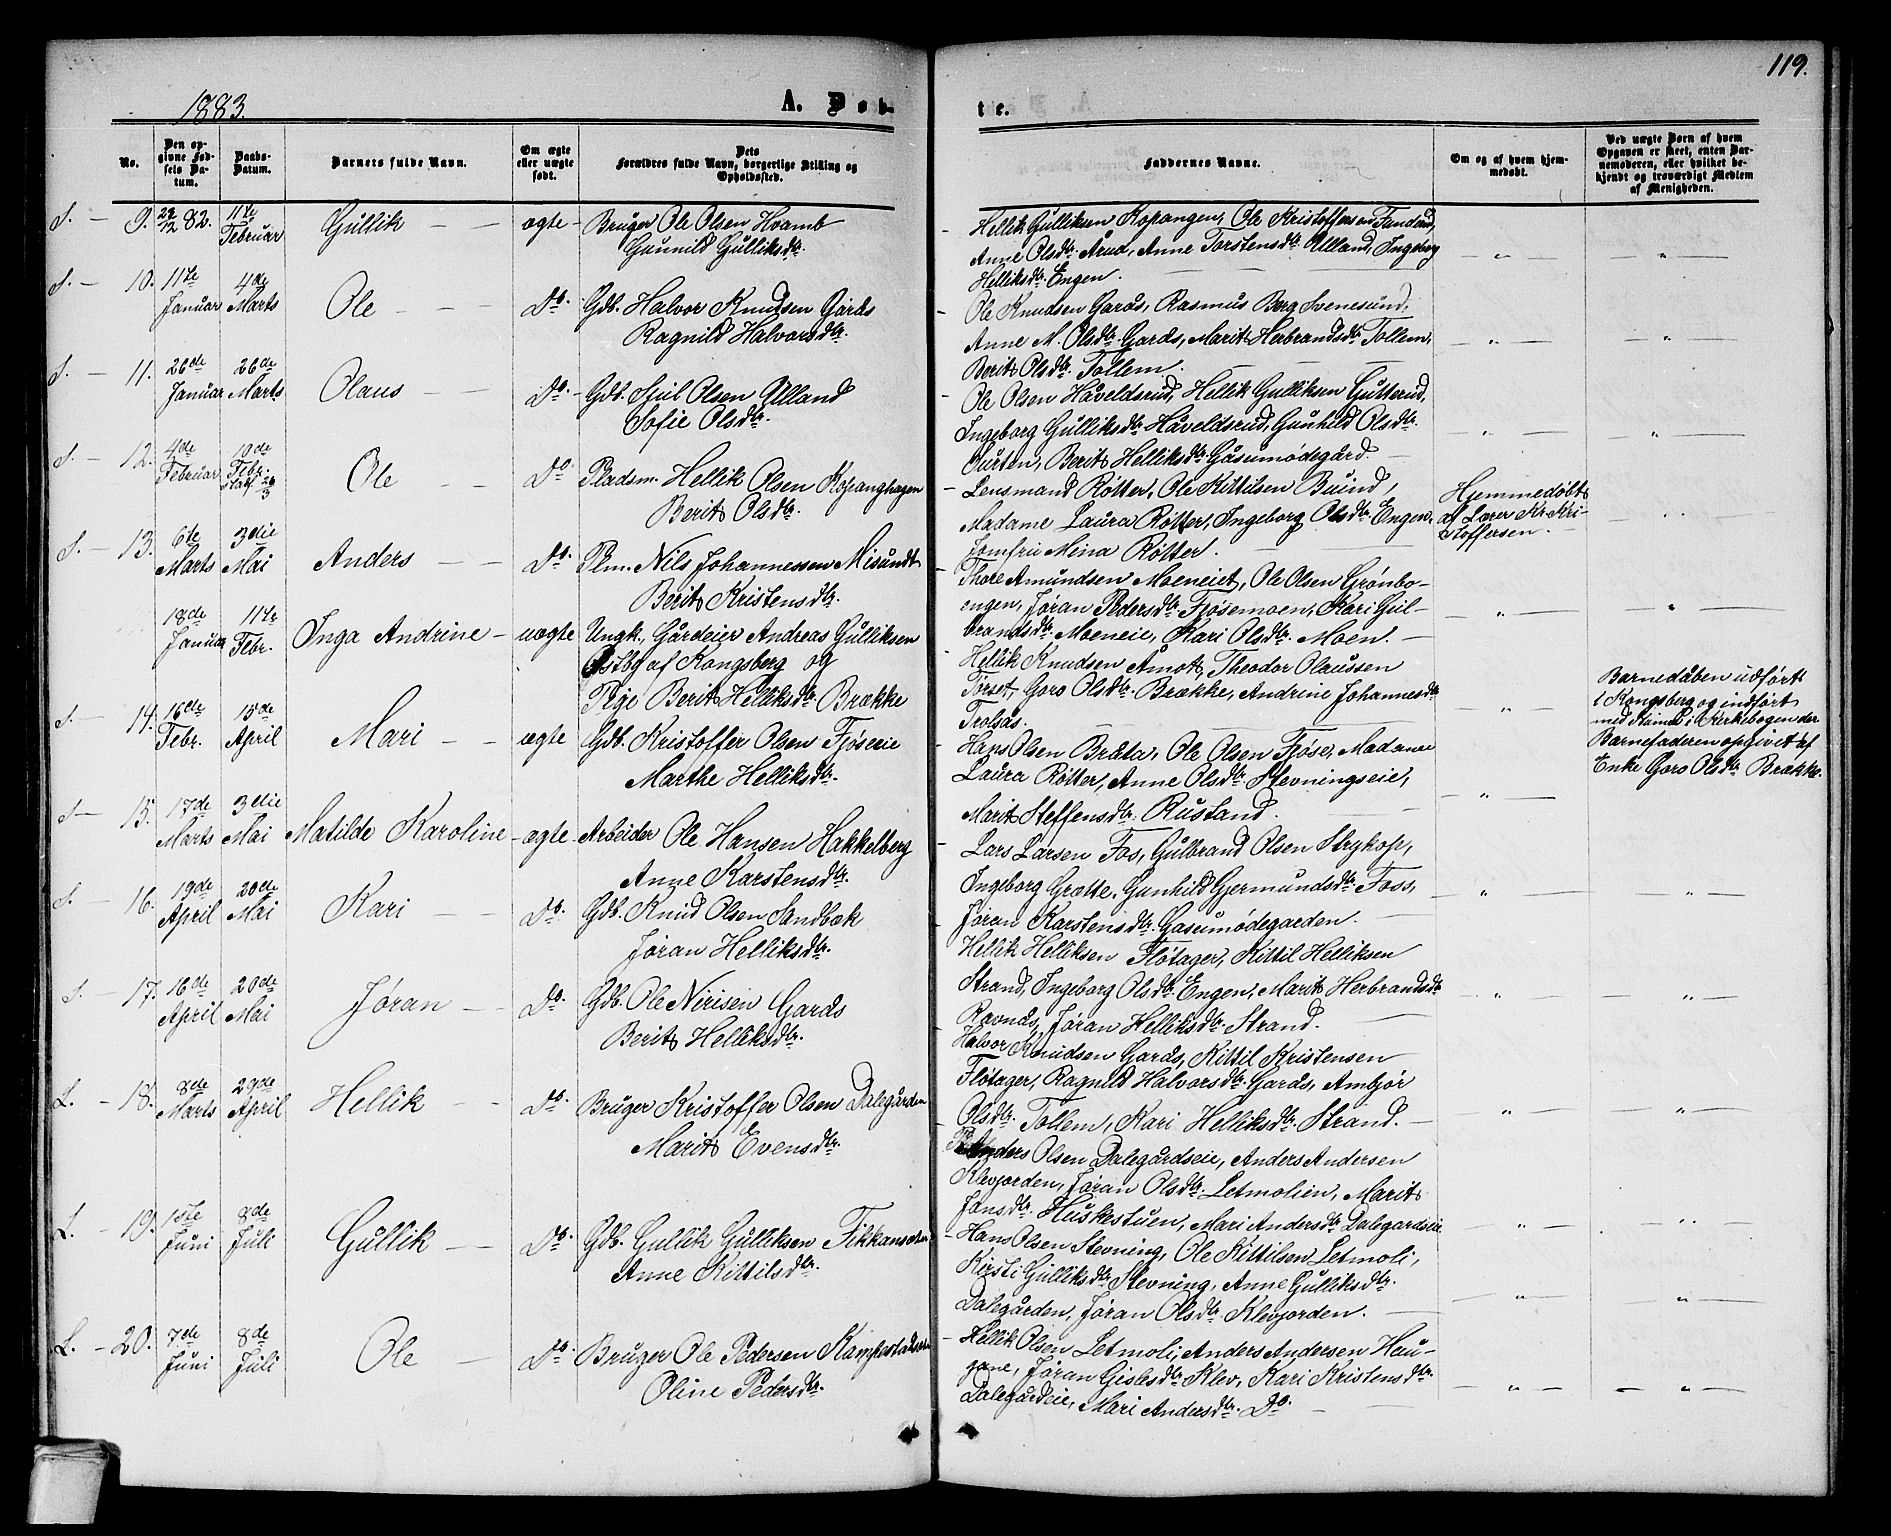 119.
1883.
A. Døb-
te.
No.
Den op-
givne Fød-
sels Da-
tum.
Daabs-
Datum.
Barnets fulde Navn.
Om ægte
eller uægte
født.
Dets
Forældres fulde Navn, borgerlige Stilling og
Opholdssted.
Faddernes Navne.
Om og af hvem hjem-
medøbt.
Ved uægte Børn af hvem
Opgaven er skeet, enten Bar-
nemoderen, eller hvilket be-
kjendt og troværdigt Medlem
af Menigheden.
S. — 9. 29/12 82. 11te Februar Gullik — — ægte — Bruger Ole Olsen Hvamb
Gunnild Gulliksdtr.
Hellik Gulliksen Kopangen, Ole Kristoffersen
Anne Olsdtr. Arud, Anne Torstensdtr. Ulland, Ingeborg
Helliksdtr. Engen.
S. — 10. 11te Januar 4de Marts Ole — — Do. Gdb. Halvor Knudsen Gards
Ragnild Halvorsdtr.
Ole Knudsen Gards, Rasmus Berg Svenesund,
Anne M. Olsdtr. Gards, Marit Herbrandsdtr. Tollem,
Berit Olsdtr. Tollem.
S. — 11. 26de Januar 26de Marts Olaus — Do. Gdb. Sjul Olsen Ulland
Sofie Olsdtr.
Ole Olsen Håveldsrud, Hellik Gulliksen Gutterud,
Ingeborg Gulliksdtr. Håveldsrud, Gunhild Olsdtr.
Aurten, Berit Helliksdtr. Gåsumødegård.
S. — 12. 4de Februar 10de Febr. Stadf. 26/3 Ole — — Do. Pladsm. Hellik Olsen Kopanghagen
Berit Olsdtr.
Lensmand Røtter, Ole Kittilsen Buind,
Madame Laura Røtter, Ingeborg Olsdtr. Engen,
Jomfru Mina Røtter.
Hjemmedøbt
af Lærer Kr. Kri-
stoffersen.
S. — 13. 6te Marts 3die Mai Anders — — Do. Plm. Nils Johannessen Misundt
Berit Kristensdtr.
Thore Amundsen Moeneiet, Ole Olsen Grønbo-
ongen, Jøran Pedersdtr. Fjøsemoen, Kari Gul-
brandsdtr. Moeneie, Kari Olsdtr. Moen. —
18de Januar 11te Febr. Inga Andrine — uægte Ungk., Gårdeier Andreas Gulliksen
Østby af Kongsberg og
Pige Berit Helliksdtr. Brække
Hellik Knudsen Åmot, Theodor Olaussen
Tørset, Goro Olsdtr. Brække, Andrine Johannesdtr.
Trolsås.
Barnedåben udført
i Kongsberg og indført
med Numer i Kirkebogen der
Barnefaderen opgivet af
Enke Goro Olsdtr. Brække.
S. — 14. 16de Febr. 15de April Mari — — ægte Gdb. Kristoffer Olsen Fjøseie
Marthe Helliksdtr.
Hans Olsen Bråta, Ole Olsen Fjøse, Madame
Laura Røtter, Anne Olsdtr. Stevningseie,
Marit Steffensdtr. Rustand.
S. — 15. 17de Marts 3die Mai Matilde Karoline — ægte Arbeider Ole Hansen Hakkelberg
Anne Karstensdtr.
Lars Larsen Fos, Gulbrand Olsen Strykop,
Ingeborg Grøtte, Gunhild Gjermundsdtr. Foss,
Jøran Karstensdtr. Gasumødegarden. —
S. — 16. 19de April 20de Mai Kari — — Do. Gdb. Knud Olsen Sandbæk
Jøran Helliksdtr.
Hellik Helliksen Fløtager, Kittil Helliksen
Strand, Ingeborg Olsdtr. Engen, Marit Herbrandsdtr.
Ravnås, Jøran Helliksdtr. Strand.
S. — 17. 16de April 20de Mai Jøran — — Do. Gdb. Ole Nirisen Gards
Berit Helliksdtr.
Halvor Knudsen Gards, Kittil Kristensen
Fløtager, Ragnild Halvorsdtr. Gards, Ambjør
Olsdtr. Tollem, Kari Helliksdtr. Strand. —
L. — 18. 8de Marts 29de April Hellik — — Do. Bruger Kristoffer Olsen Dalegården
Marit Evensdtr.
Anders Olsen Dalegårdseie, Anders Andersen
Klevjorden, Jøran Olsdtr. Letmolien, Marit
Jansdtr. Huskestuen, Mari Andersdtr. Dalegardseie
L. — 19. 1ste Juni 8de Juli Gullik — — Do. Gdb. Gullik Gulliksen
Anne Kittilsdtr.
Hans Olsen Stevning, Ole Kittilsen Letmoli,
Kirsti Gulliksdtr. Stevning, Anne Gulliksdtr.
Dalegården, Jøran Olsdtr. Klevjorden.
L. — 20. 7de Juni 8de Juli Ole — Do. Bruger Ole Pedersen
Oline Pedersdtr.
Hellik Olsen Letmoli, Anders Andersen Hau-
gane, Jøran Gislesdtr. Klev, Kari Kristensdtr.
Dalegårdeie, Mari Andersdtr. Do. —